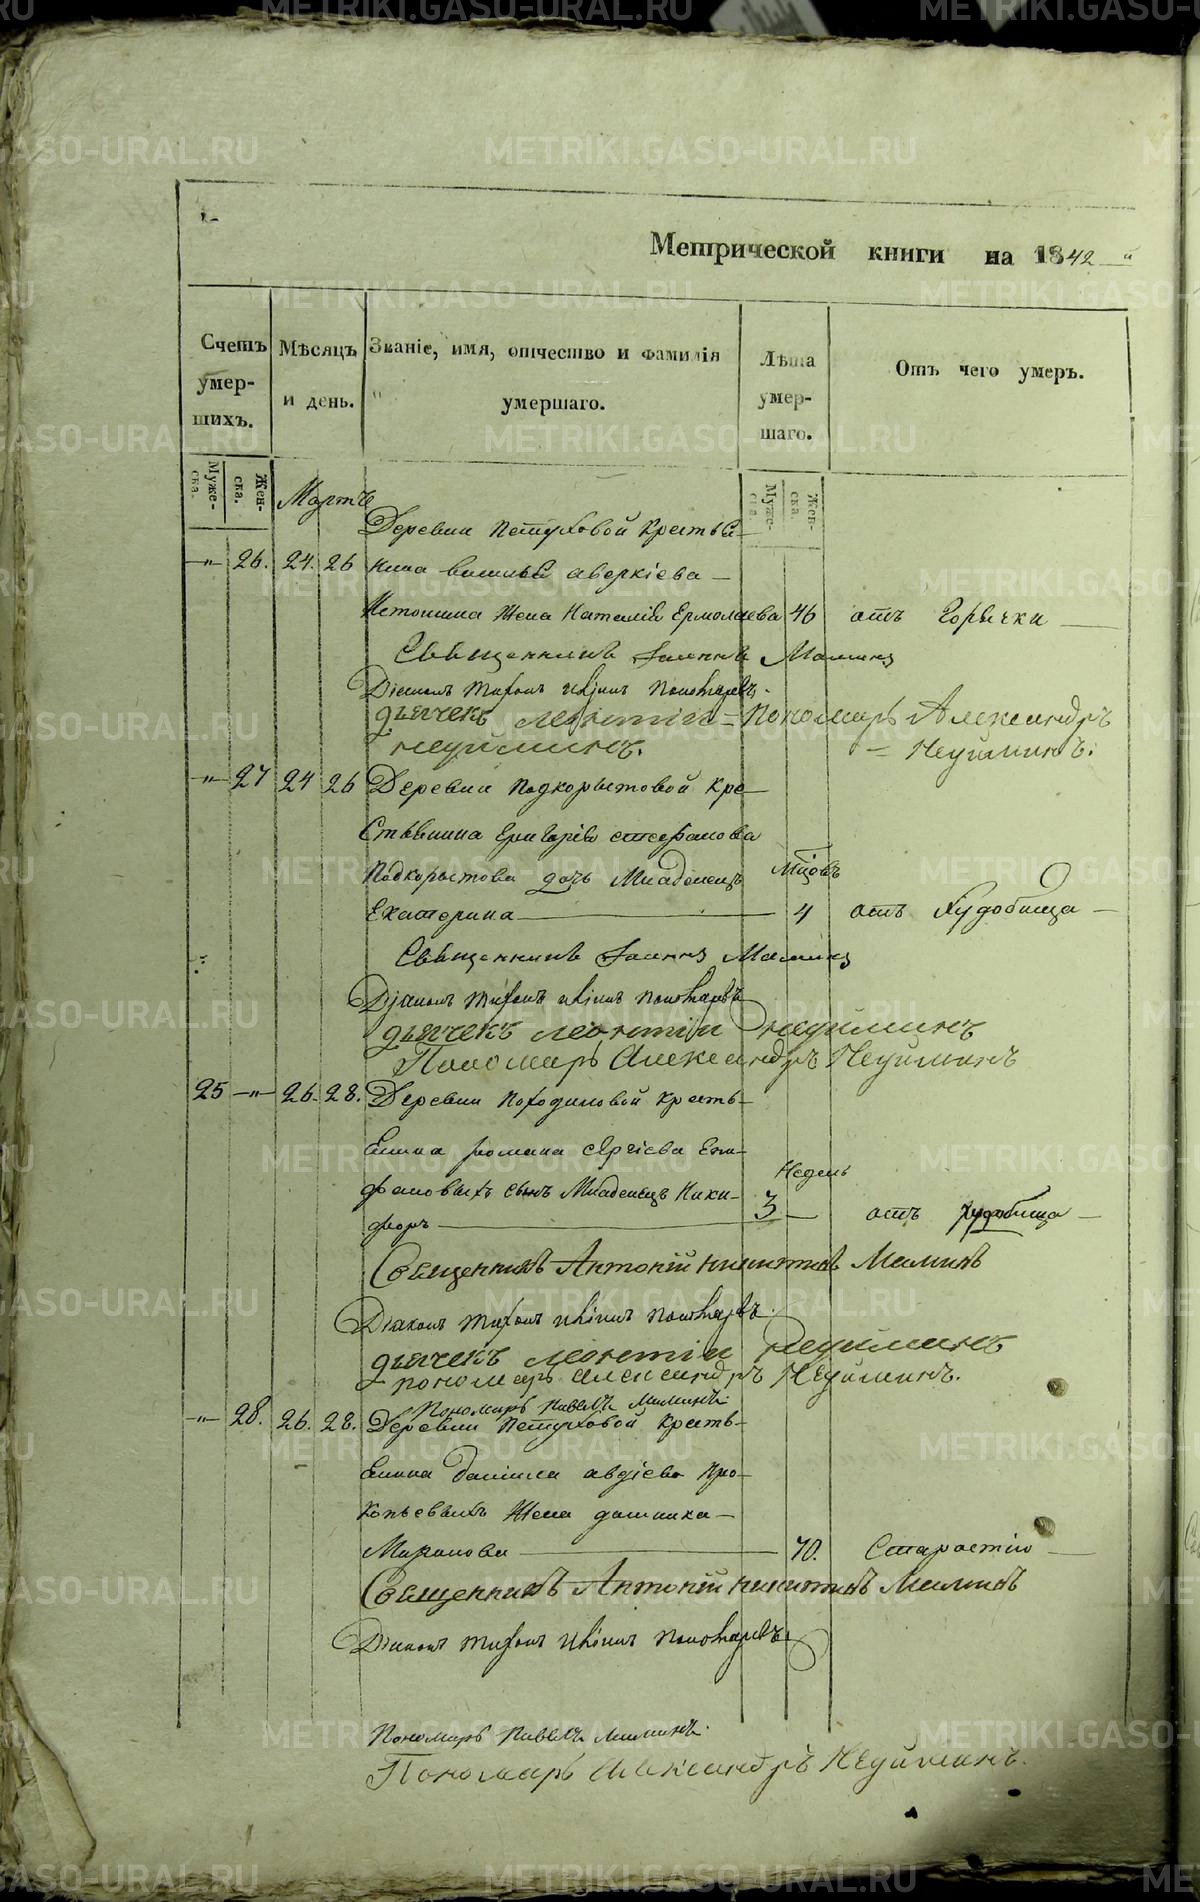 Метрической книги на 1842 й
Счетъ умершихъ.
Мѣсяцъ и день.
Званіе, имя, отчество и фамилія умершаго.
Лѣта умершаго.
Отъ чего умеръ.
Муже-ска. Жен-ска.
Муже-ска. Жен-ска.
Мартъ
Деревни Петуховой Крестья-
-„- 26. 24. 26 нина Василья Аверкіева
Устюгина Жена Наталія Ермолаева 46 отъ Горячки
Священникъ Іоаннъ Маминъ
Діаконъ Пономаревъ.
дьячекъ Леонтій = Пономарь Александръ
Неуйминъ. = Неуйминъ.
-„- 27 24 26 Деревни Подкорытовой Кре-
стьянина Григорія Стефанова
Подкорытова дочь Младенецъ Мцовъ
Екатерина 4 отъ Худобища
Священникъ Іоаннъ Маминъ
Діаконъ Пономаревъ
дьячекъ Леонтій Неуйминъ
Пономарь Александръ Неуйминъ
25 -„- 26. 28. Деревни Походиловой Кресть-
янина Романа Сергіева Епи-
Недель
фановыхъ сынъ Младенецъ Ники-
форъ 3 отъ Худобища
Священникъ Антоній Никитинъ Маминъ
Діаконъ Пономаревъ.
дьячекъ Леонтій Неуйминъ
пономарь Александръ Неуйминъ.
Пономарь Павелъ Маминъ
-„- 28. 26. 28. Деревни Петуховой Кресть-
янина Даніила Авдіева Про-
копьевыхъ Жена Домника
Миронова 70. Старостію
Священникъ Антоній Никитинъ Маминъ
Діаконъ Пономаревъ.
Пономарь Павелъ Маминъ.
Пономарь Александръ Неуйминъ.
METRIKI.GASO-URAL.RU